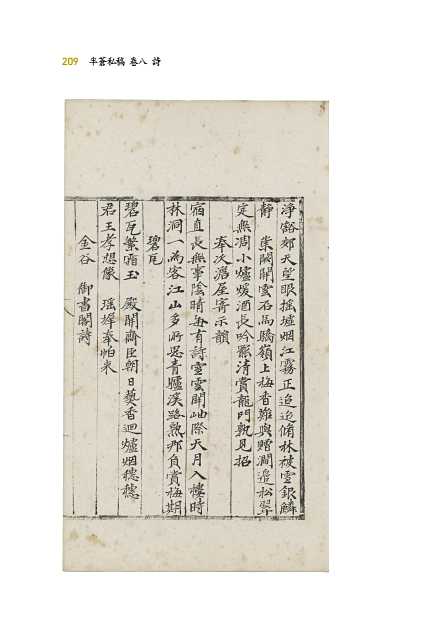 209 半蒼私稿 卷八 詩
淨谿郊天望眼摇墟烟江霧正迢迢脩林被雪銀鱗
静 業閣開雲石馬驕嶺上梅香難與贈澗邊松翠
定無凋小爐煖酒長吟縣清賞龍門孰見招
奉次 屋寄示韻
宿直長無事陰晴每有詩雪雲開岫際天月入樓時
林洞一為客江山多所思青驢溪路熟那負賞梅期
碧瓦
碧瓦繁霜玉 殿開齋臣朝日奠香迴爐烟穗穗
君王孝想像 瑶墀奉帕来
金谷 御書閣詩